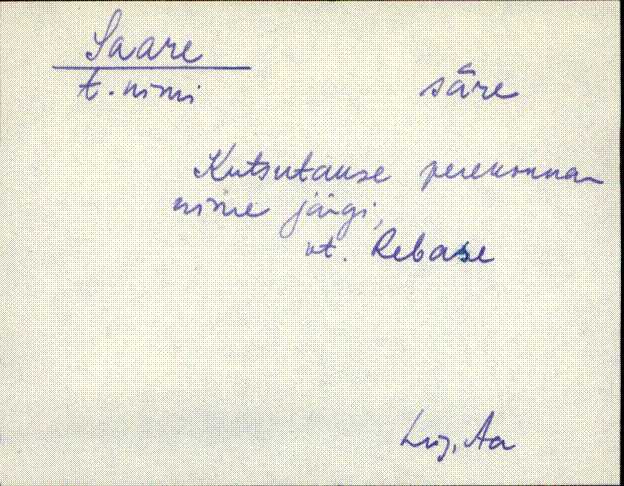 Saare
t. nimi
säre
Kutsutakse perekonna-
nime järgi,
vt. Rebase
Lüg, Aa